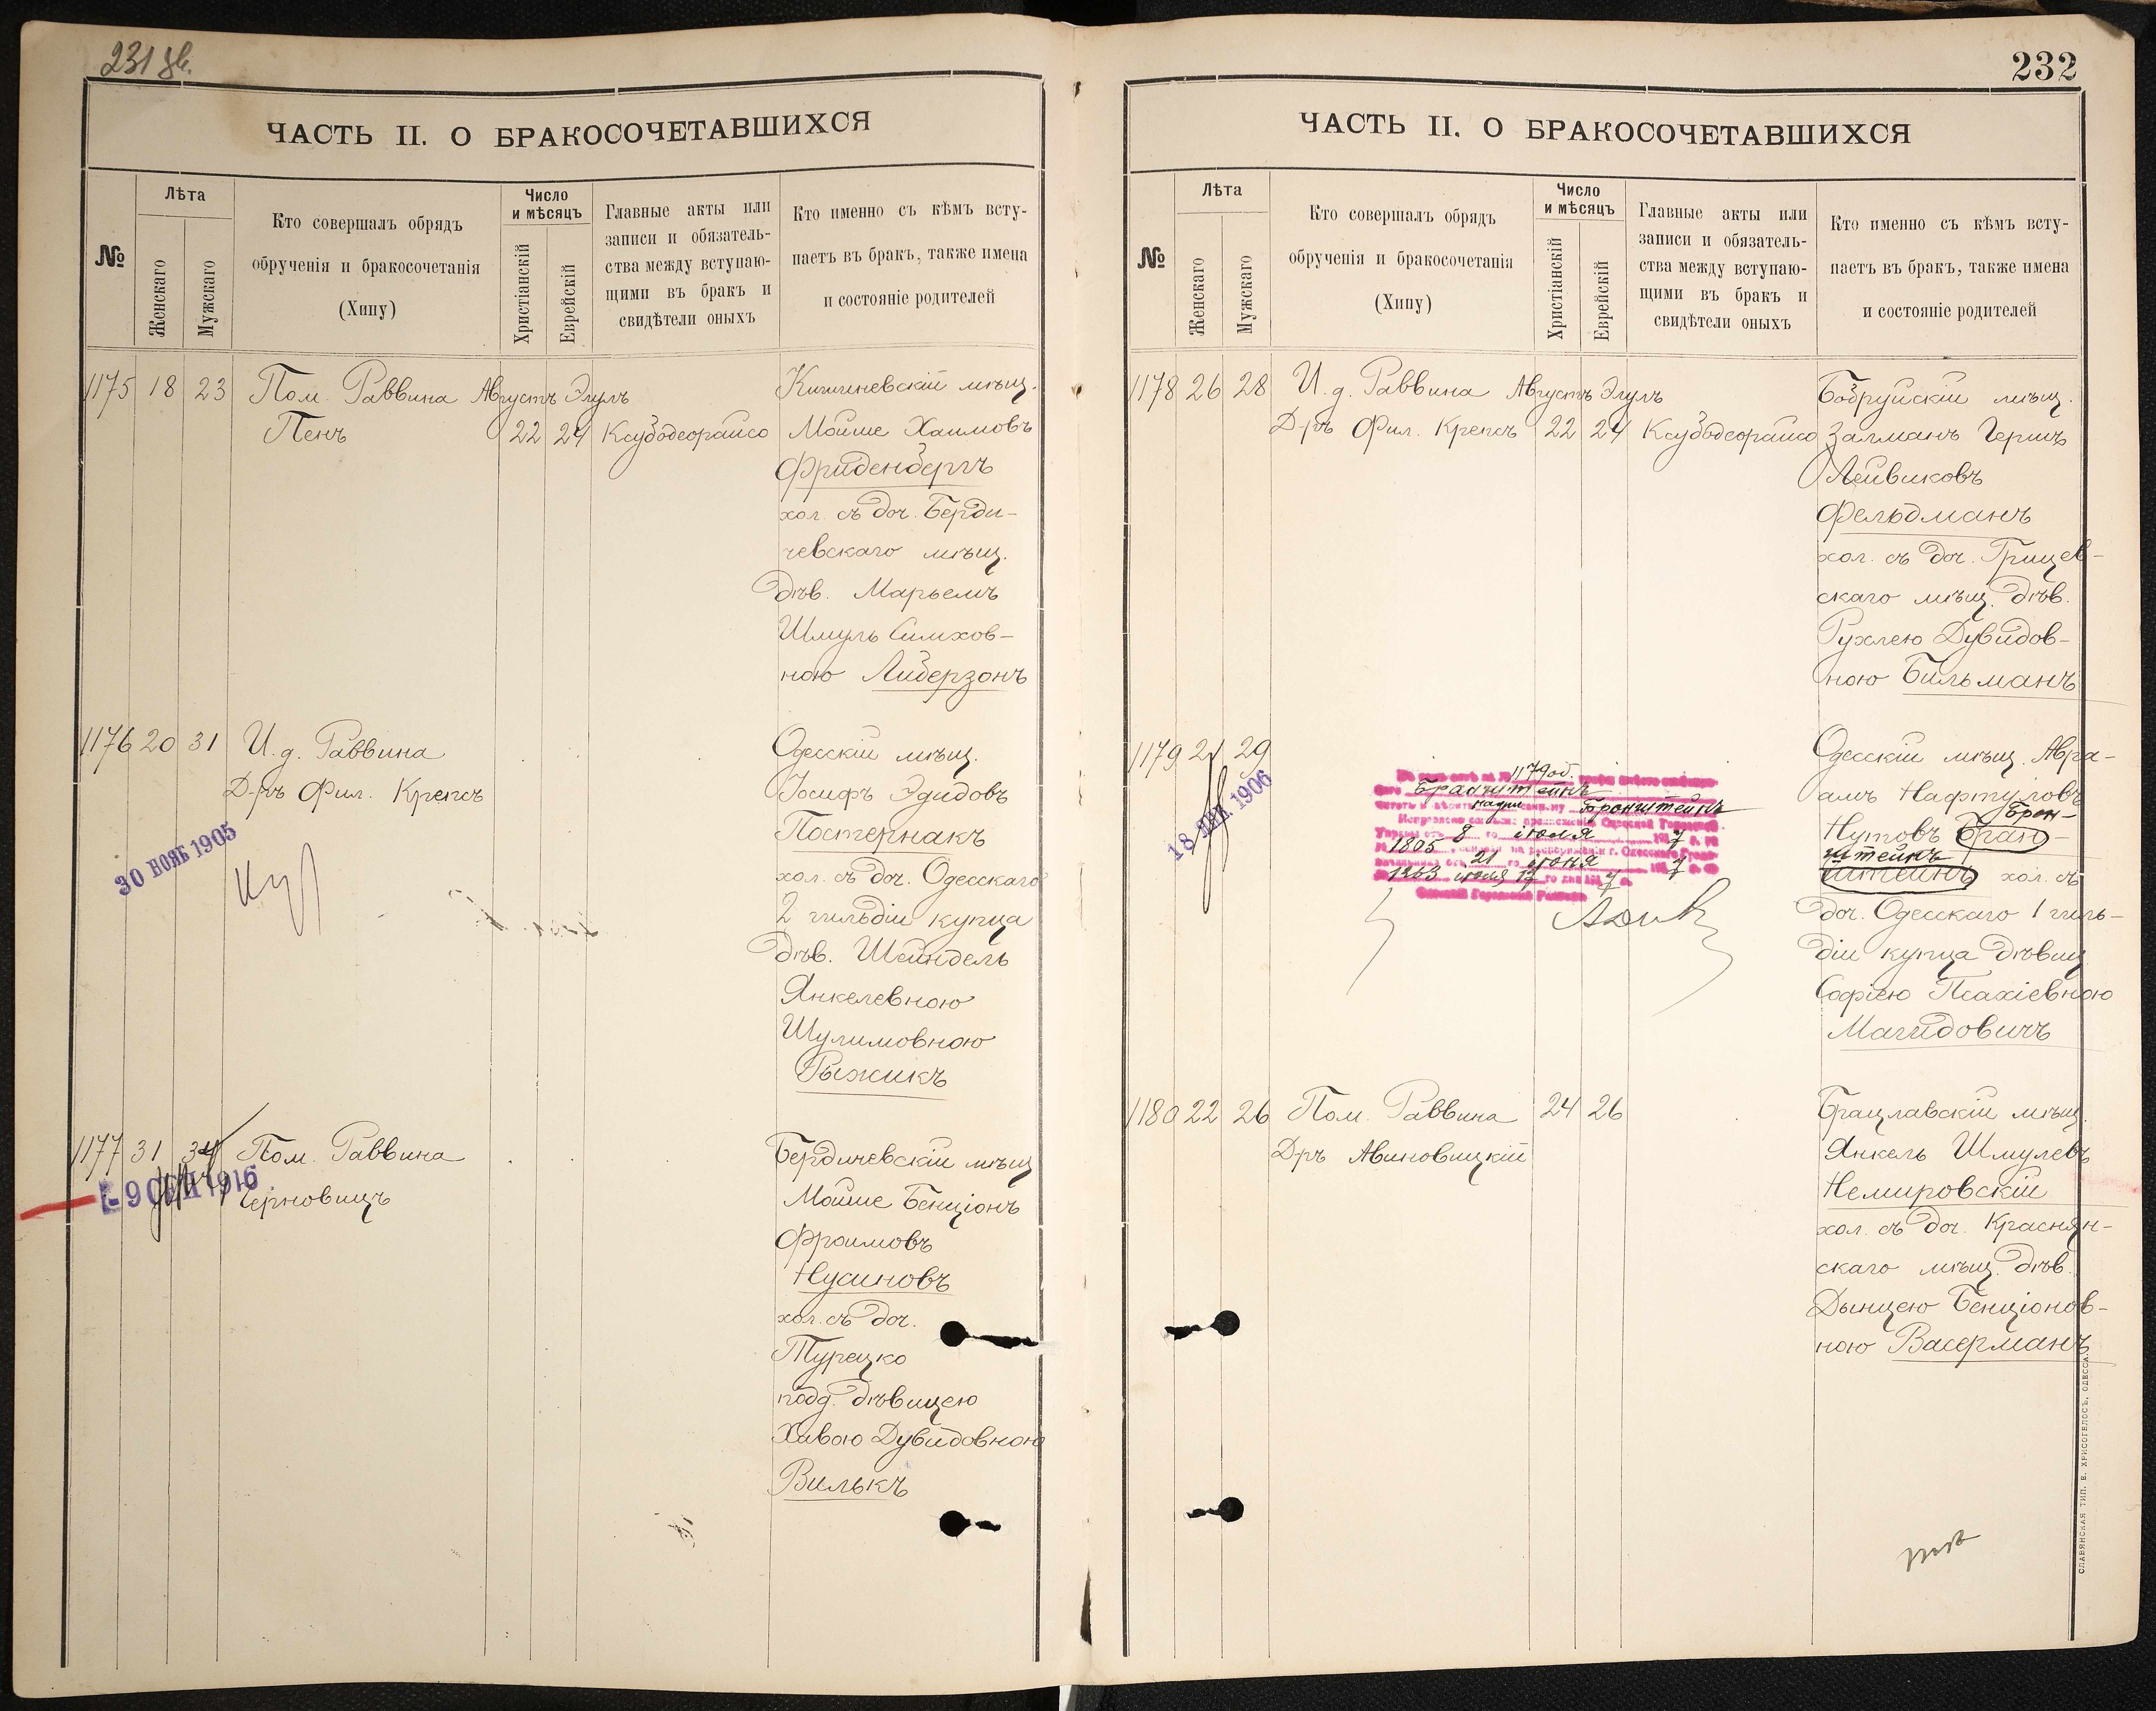 231 об.
ЧАСТЬ II. О БРАКОСОЧЕТАВШИХСЯ
№
Лѣта
Женскаго
Мужскаго
Кто совершалъ обрядъ
обрученія и бракосочетанія
(Хипу)
Число
и мѣсяцъ
Христіанскій
Еврейскій
Главные акты или
записи и обязатель-
ства между вступаю-
щими въ бракъ и
свидѣтели оныхъ
Кто именно съ кѣмъ всту-
паетъ въ бракъ, также имена
и состояніе родителей
1175 18 23 Пом. Раввина Августъ Элулъ Кишиневскій мѣщ.
Пенъ 22 24 Ксубодеорайсо Мойше Хаимовъ
Фриденбергъ
хол. съ доч. Берди-
чевскаго мѣщ.
дѣв. Марьемъ
Шмуль Симхов-
ною Либерзонъ
1176 20 31 И. д. Раввина Одесскій мѣщ.
Д-ръ Фил. Крепсъ Іосифъ Эдидовъ
Постернакъ
30 НОЯБ 1905
хол. съ доч. Одесскаго
2 гильдіи купца
дѣв. Шейндель
Янкелевною
Шулимовною
Рыжикъ
1177 31 34 Пом. Раввина Бердичевскій мѣщ
-9 СЕН 1916
Черновицъ Мойше Бенціонъ
Фроимовъ
Нусиновъ
хол. съ доч.
Турецко
подд. дѣвицею
Хавою Дувидовною
Вилькъ
232
ЧАСТЬ II. О БРАКОСОЧЕТАВШИХСЯ
№
Лѣта
Женскаго
Мужскаго
Кто совершалъ обрядъ
обрученія и бракосочетанія
(Хипу)
Число
и мѣсяцъ
Христіанскій
Еврейскій
Главные акты или
записи и обязатель-
ства между вступаю-
щими въ бракъ и
свидѣтели оныхъ
Кто именно съ кѣмъ всту-
паетъ въ бракъ, также имена
и состояніе родителей
1178 26 28 И. д. Раввина Августъ Элулъ Бобруйскій мѣщ.
Д-ръ Фил. Крепсъ 22 24 Ксубодеорайсо Залманъ Гершъ
Лейвиковъ
Фельдманъ
хол. съ доч. Грицев-
скаго мѣщ. дѣв.
Рухлею Дувидов-
ною Бильманъ
1179 21 29 Одесскій мѣщ. Авра-
амъ Нафтуловъ
Брон-
Нутовъ Бран-
штейнъ
штейнъ хол. съ
18 ЯНВ 1906
1179 об.
Бранштейнъ
Бронштейнъ
Исправлено
8 іюля 7
1805
21 іюня 7
1263 іюля 17
доч. Одесскаго 1 гиль-
діи купца дѣвиц
Софіею Псахіевною
Магидовичъ
1180 22 26 Пом. Раввина 24 26 Брацлавскій мѣщ
Д-ръ Авиновицкій Янкель Шмулевъ
Немировскій
хол. съ доч. Краснян-
скаго мѣщ. дѣв.
Дынцею Бенціонов-
ною Васерманъ
СЛАВЯНСКАЯ ТИП. Е. ХРИСОГЕЛОСЪ, ОДЕССА.